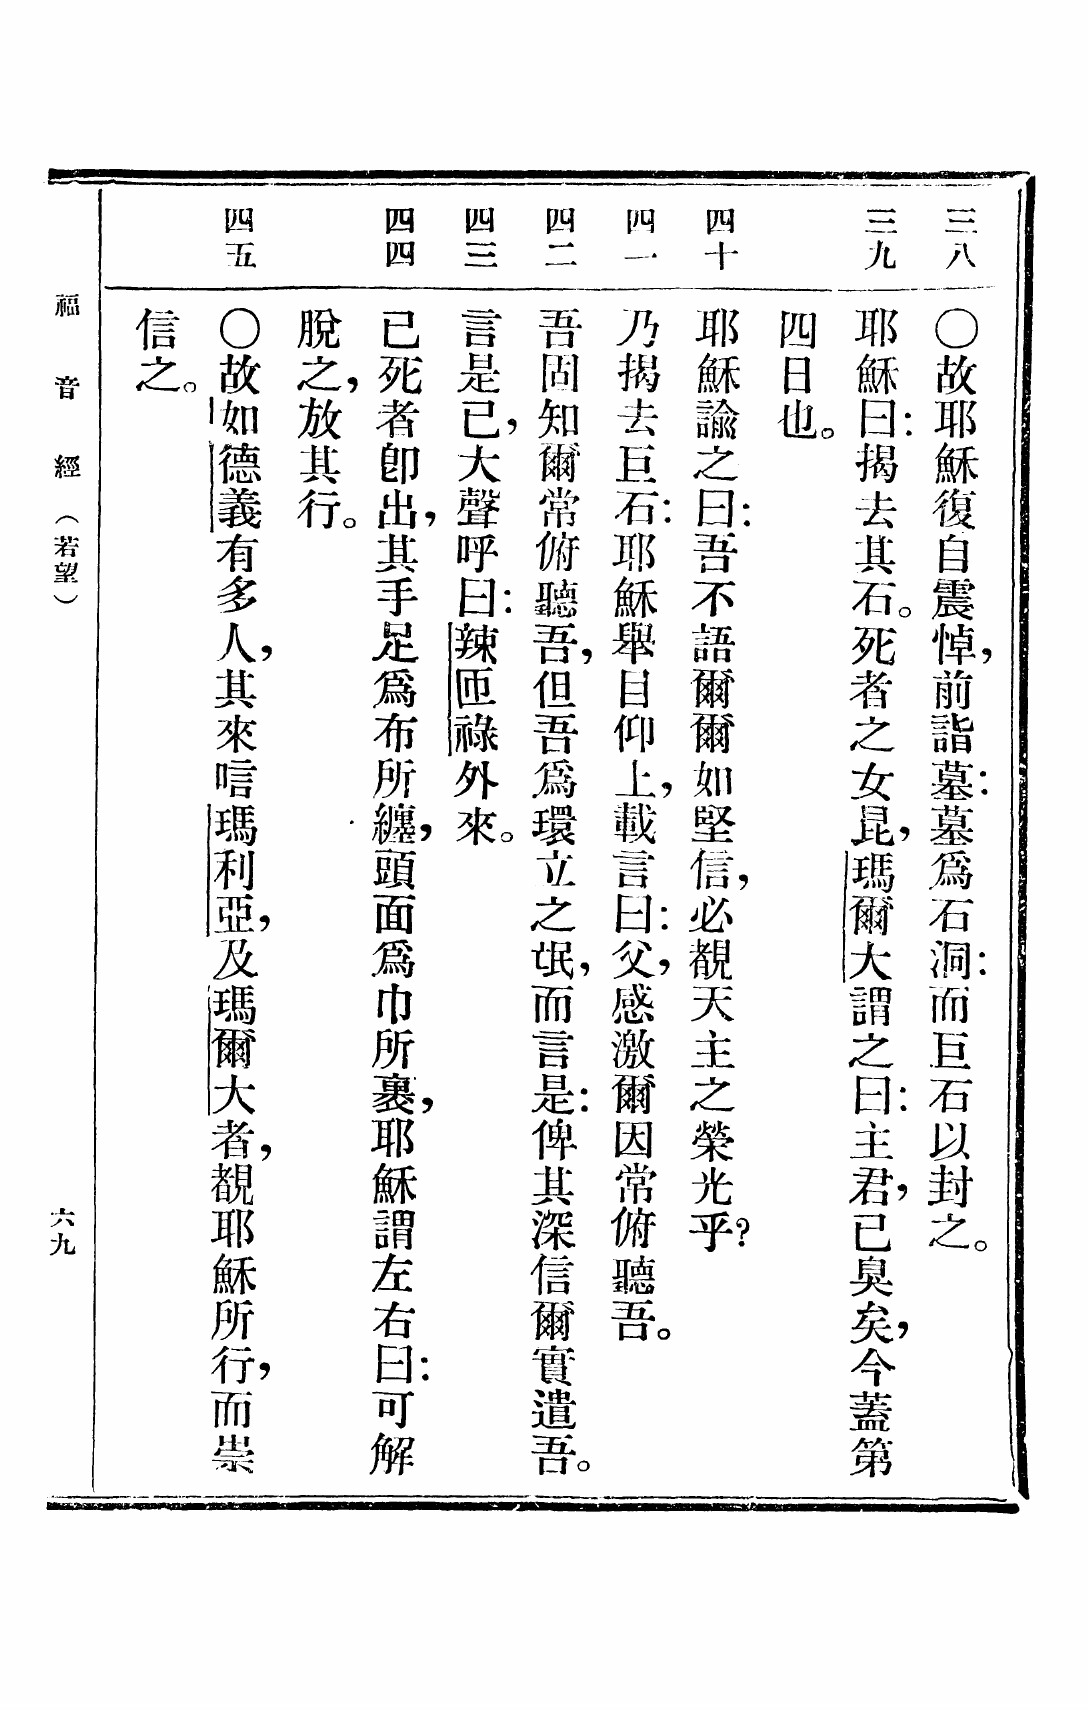 三八
〇故耶穌復自震悼，前詣墓：墓爲石洞：而巨石以封之。
三九
耶穌曰：揭去其石。死者之女昆，瑪爾大謂之曰：主君，已臭矣，今蓋第
四日也。
四十
耶穌諭之曰：吾不語爾爾如堅信，必覩天主之榮光乎？
四一
乃揭去巨石：耶穌舉目仰上，載言曰：父，感激爾因常俯聽吾。
四二
吾固知爾常俯聽吾，但吾爲環立之氓，而言是：俾其深信爾實遣吾。
四三
言是已，大聲呼曰：辣匝祿外來。
四四
已死者卽出，其手足爲布所纏，頭面爲巾所裹，耶穌謂左右曰：可解
脫之，放其行。
四五
〇故如德義有多人，其來唁瑪利亞，及瑪爾大者，覩耶穌所行，而崇
信之。
福音經（若望）
六九